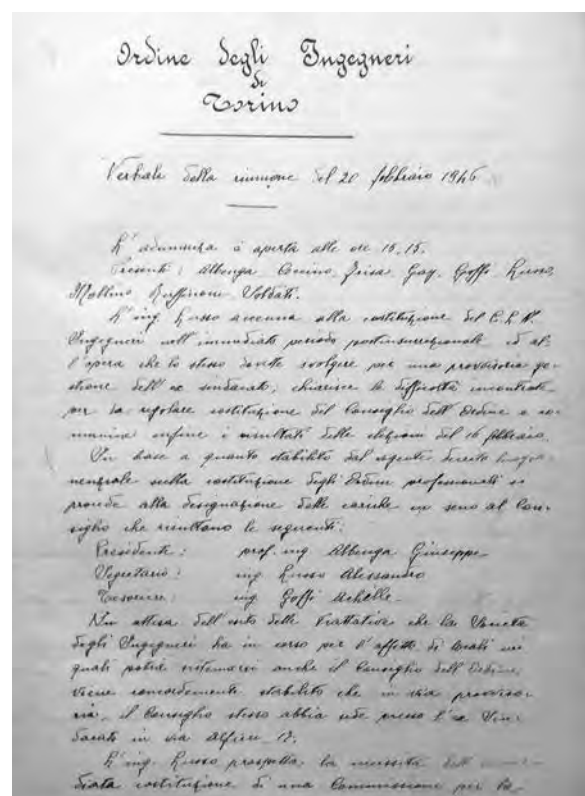 Ordine degli Ingegneri
di
Torino
Verbale della riunione del 20 febbraio 1946
L'adunanza è aperta alle ore 15,15.
Presenti: Albenga, Goffi, Russo,
Mollino, Ruffinoni, Soldati.
L'ing. Russo accenna alla costituzione del C.L.N.
Ingegneri nell'immediato periodo postinsurrezionale ed al-
l'opera che lo stesso dovette svolgere per una provvisoria ge-
stione dell'ex sindacato; chiarisce le difficoltà incontrate
per la regolare costituzione del Consiglio dell'Ordine e co-
munica infine i risultati delle elezioni del 16 febbraio.
In base a quanto stabilito dal vigente decreto luogo-
tenenziale sulla costituzione degli Ordini professionali si
procede alla designazione delle cariche in seno al Con-
siglio che risultano le seguenti:
Presidente: prof. ing. Albenga Giuseppe
Segretario: ing. Russo Alessandro
Tesoriere: ing. Goffi Achille
In attesa dell'esito delle trattative che la Società
degli Ingegneri ha in corso per l'affitto di locali nei
quali potrà sistemarsi anche il Consiglio dell'Ordine,
viene concordemente stabilito che in via provviso-
ria, il Consiglio stesso abbia sede presso l'ex Sin-
dacato in via Alfieri 17.
L'ing. Russo prospetta la necessità dell'imme-
diata costituzione di una Commissione per la